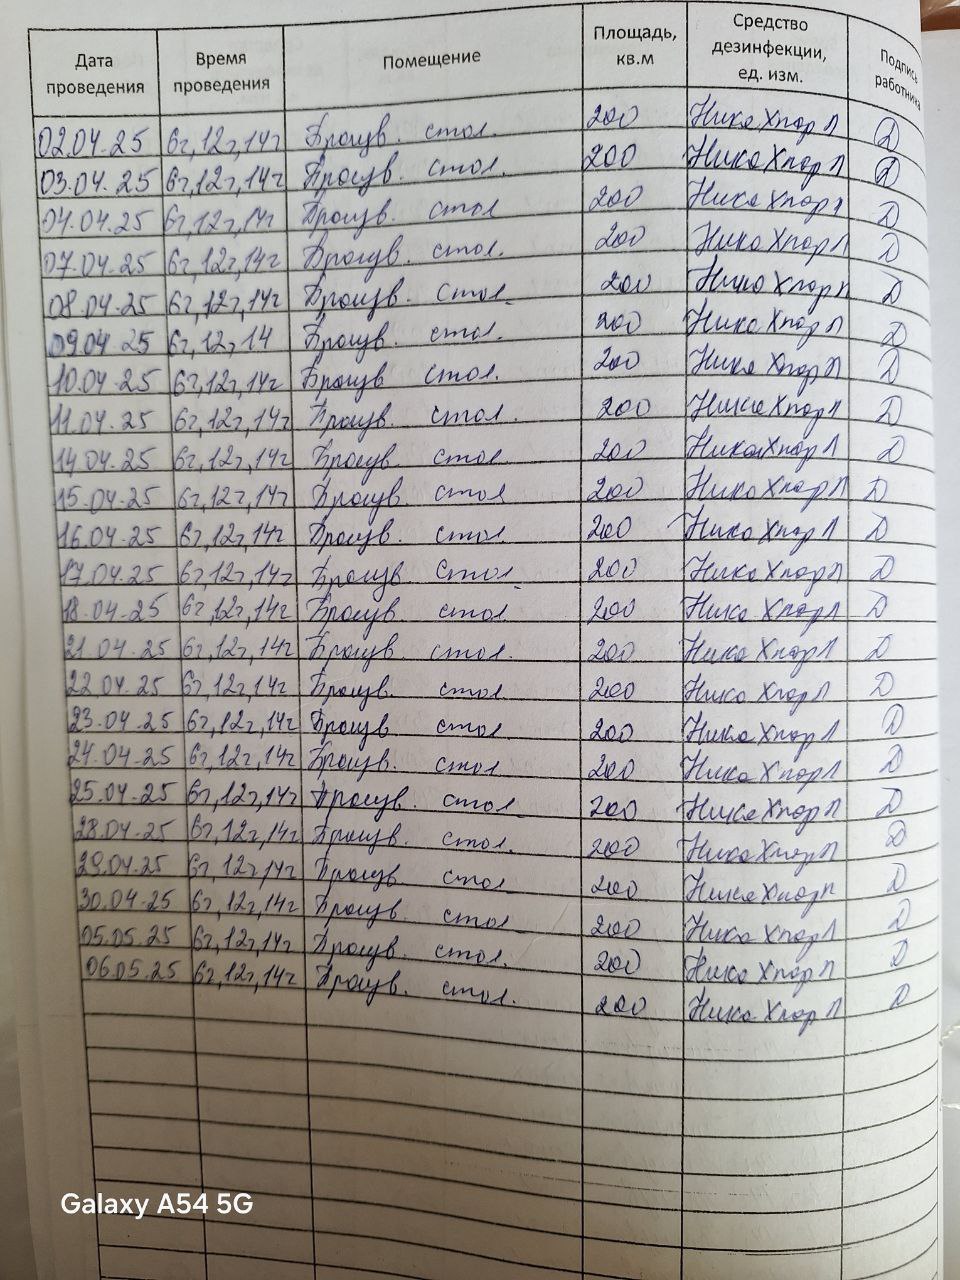 Дата проведения Время проведения Помещение Площадь, кв.м Средство дезинфекции, ед. изм. Подпись работника
02.04.25 6ч,12ч,14ч Произв. стол. 200 Ника Хлор П Д
03.04.25 6ч,12ч,14ч Произв. стол. 200 Ника Хлор П Д
04.04.25 6ч,12ч,14ч Произв. стол 200 Ника Хлор П Д
07.04.25 6ч,12ч,14ч Произв. стол 200 Ника Хлор П Д
08.04.25 6ч,12ч,14ч Произв. стол. 200 Ника Хлор П Д
09.04.25 6ч,12ч,14 Произв. стол. 200 Ника Хлор П Д
10.04.25 6ч,12ч,14ч Произв. стол. 200 Ника Хлор П Д
11.04.25 6ч,12ч,14ч Произв. стол. 200 Ника Хлор П Д
14.04.25 6ч,12ч,14ч Произв. стол. 200 Ника Хлор П Д
15.04.25 6ч,12ч,14ч Произв. стол 200 Ника Хлор П Д
16.04.25 6ч,12ч,14ч Произв. стол. 200 Ника Хлор П Д
17.04.25 6ч,12ч,14ч Произв. стол. 200 Ника Хлор П Д
18.04.25 6ч,12ч,14ч Произв. стол. 200 Ника Хлор П Д
21.04.25 6ч,12ч,14ч Произв. стол. 200 Ника Хлор П Д
22.04.25 6ч,12ч,14ч Произв. стол. 200 Ника Хлор П Д
23.04.25 6ч,12ч,14ч Произв. стол 200 Ника Хлор П Д
24.04.25 6ч,12ч,14ч Произв. стол 200 Ника Хлор П Д
25.04.25 6ч,12ч,14ч Произв. стол 200 Ника Хлор П Д
28.04.25 6ч,12ч,14ч Произв. стол. 200 Ника Хлор П Д
29.04.25 6ч,12ч,14ч Произв. стол 200 Ника Хлор П Д
30.04.25 6ч,12ч,14ч Произв. стол 200 Ника Хлор П Д
05.05.25 6ч,12ч,14ч Произв. стол. 200 Ника Хлор П Д
06.05.25 6ч,12ч,14ч Произв. стол. 200 Ника Хлор П Д
Galaxy A54 5G